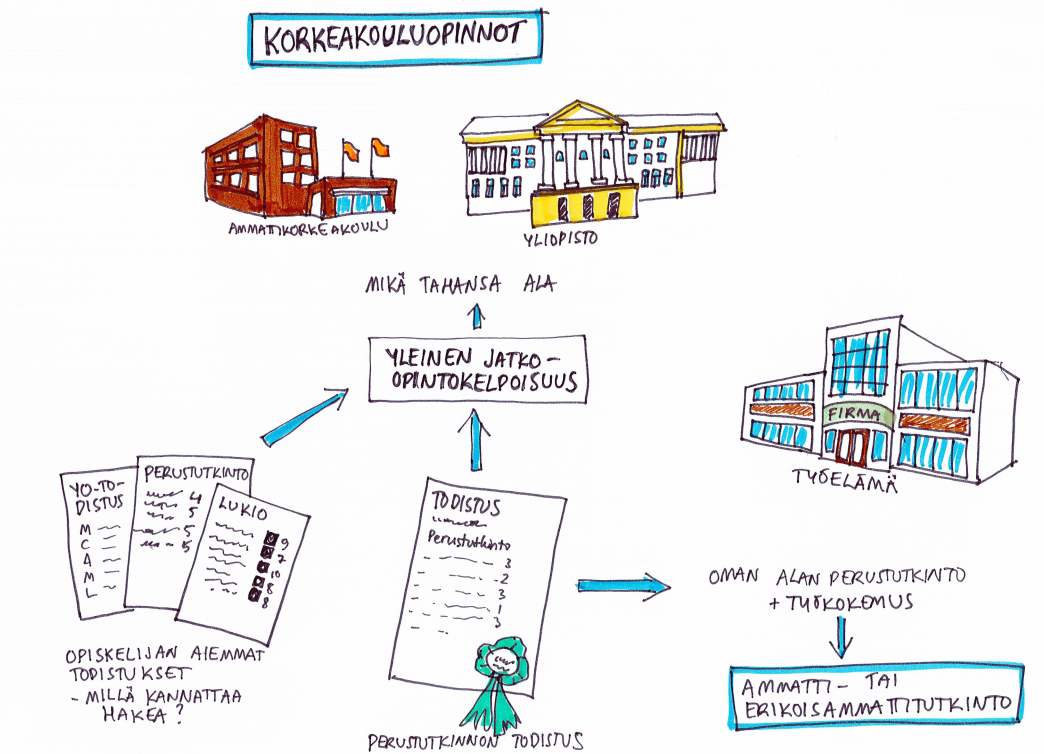 KORKEAKOULUOPINNOT
AMMATTIKORKEAKOULU
YLIOPISTO
MIKÄ TAHANSA ALA
YLEINEN JATKO-
OPINTOKELPOISUUS
FIRMA
TYÖELÄMÄ
YO-TO-
DISTUS
M
C
A
M
L
PERUSTUTKINTO
4
5
5
5
LUKIO
9
7
10
8
8
TODISTUS
Perustutkinto
3
2
3
1
3
OPISKELIJAN AIEMMAT
TODISTUKSET
- MILLÄ KANNATTAA
HAKEA?
PERUSTUTKINNON TODISTUS
OMAN ALAN PERUSTUTKINTO
+ TYÖKOKEMUS
AMMATTI- TAI
ERIKOISAMMATTITUTKINTO